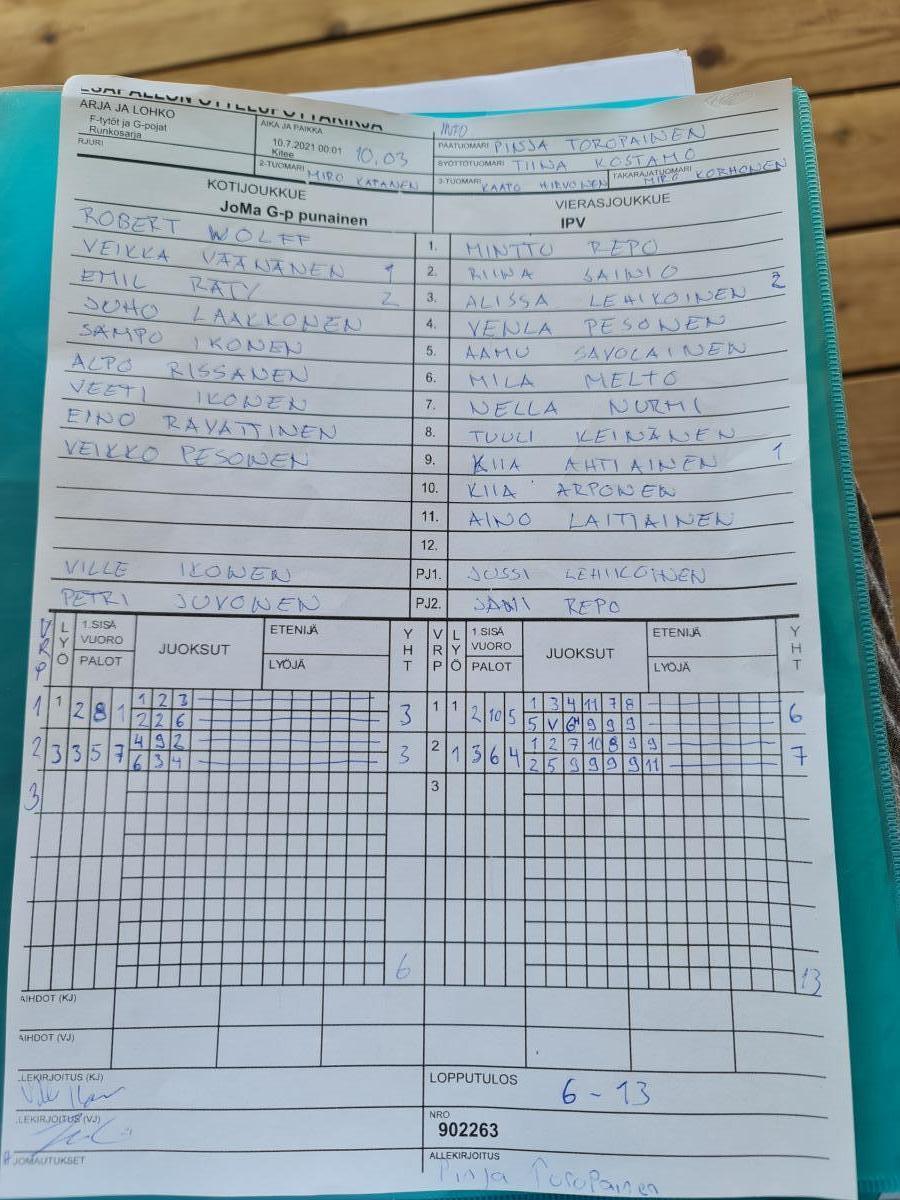 ARJA JA LOHKO
F-tytöt ja G-pojat
Runkosarja
RJURI
AIKA JA PAIKKA
10.7.2021 00:01 10,03
Kitee
2-TUOMARI MIRO KATANEN
INFO
PÄÄTUOMARI PINJA TOROPAINEN
SYÖTTÖTUOMARI TIINA KOSTAMO
3-TUOMARI KAATO HIRVONEN TAKARAJATUOMARI MIRO KORHONEN
KOTIJOUKKUE
JoMa G-p punainen
VIERASJOUKKUE
IPV
ROBERT WOLFF 1. MINTTU REPO
VEIKKA VÄÄNÄNEN 1 2. RIINA SAINIO
EMIL RÄTY 2 3. ALISSA LEHIKOINEN 2
JUHO LAAKKONEN 4. VENLA PESONEN
SAMPO IKONEN 5. AAMU SAVOLAINEN
ALPO RISSANEN 6. MILA MELTO
VEETI IKONEN 7. NELLA NURMI
EINO RAVATTINEN 8. TUULI KEINÄNEN
VEIKKO PESONEN 9. KIIA AHTIAINEN 1
10. KIIA ARPONEN
11. AINO LAITIAINEN
12.
VILLE IKONEN PJ1. JUSSI LEHIKOINEN
PETRI JUVONEN PJ2. JANI REPO
VRP LYÖ 1.SISÄ VUORO PALOT JUOKSUT ETENIJÄ LYÖJÄ YHT VRP LYÖ 1.SISÄ VUORO PALOT JUOKSUT ETENIJÄ LYÖJÄ YHT
1 1 2 8 1 1 2 3 3 1 1 2 10 5 1 3 4 11 7 8 6
2 2 6 5 V 6 9 9 9
2 3 3 5 7 4 9 2 3 2 1 3 6 4 1 2 7 10 8 9 9 7
6 3 4 2 5 9 9 9 9 11
3 3
6 13
AIHDOT (KJ)
AIHDOT (VJ)
LEKIRJOITUS (KJ)
LOPPUTULOS 6 - 13
LEKIRJOITUS (VJ)
NRO
902263
JOMAUTUKSET
ALLEKIRJOITUS
Pinja Toropainen